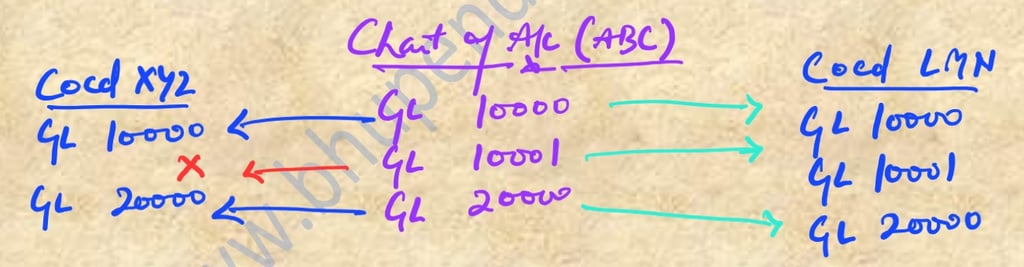 Chart of A/c (ABC)
Cocd XYZ
GL 10000
X
GL 20000
GL 10000
GL 10001
GL 20000
Cocd LMN
GL 10000
GL 10001
GL 20000